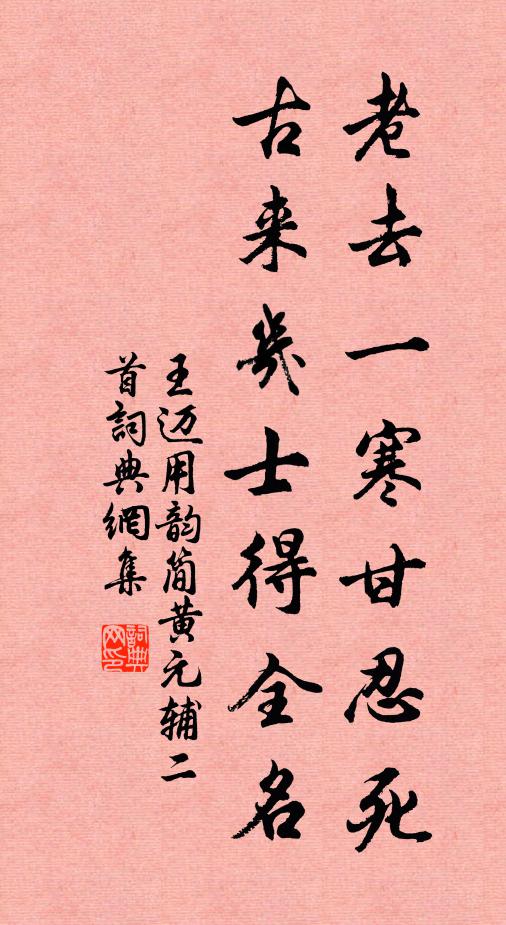 老去一寒甘忍死
古来几士得全名
王迈用韵简黄元辅二
首詞典網集
詞典网印